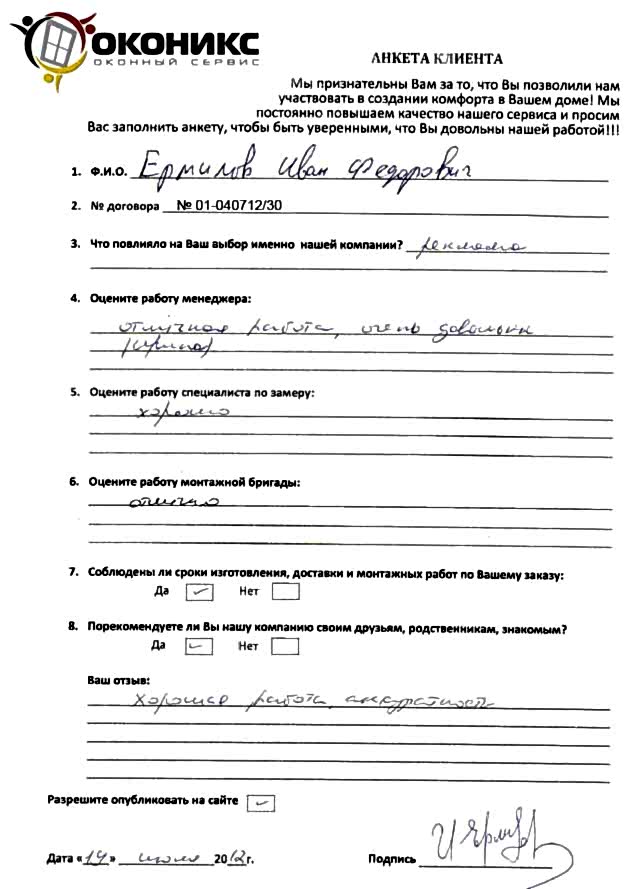 ОКОНИКС
ОКОННЫЙ СЕРВИС
АНКЕТА КЛИЕНТА
Мы признательны Вам за то, что Вы позволили нам
участвовать в создании комфорта в Вашем доме! Мы
постоянно повышаем качество нашего сервиса и просим
Вас заполнить анкету, чтобы быть уверенными, что Вы довольны нашей работой!!!
1. Ф.И.О. Ермилов Иван Федорович
2. № договора № 01-040712/30
3. Что повлияло на Ваш выбор именно нашей компании? реклама
4. Оцените работу менеджера:
отличная работа, очень довольны
(Ирина)
5. Оцените работу специалиста по замеру:
хорошо
6. Оцените работу монтажной бригады:
отлично
7. Соблюдены ли сроки изготовления, доставки и монтажных работ по Вашему заказу:
Да ✓ Нет
8. Порекомендуете ли Вы нашу компанию своим друзьям, родственникам, знакомым?
Да ✓ Нет
Ваш отзыв:
хорошая работа, аккуратность
Разрешите опубликовать на сайте ✓
Дата «19» июля 2012г. Подпись